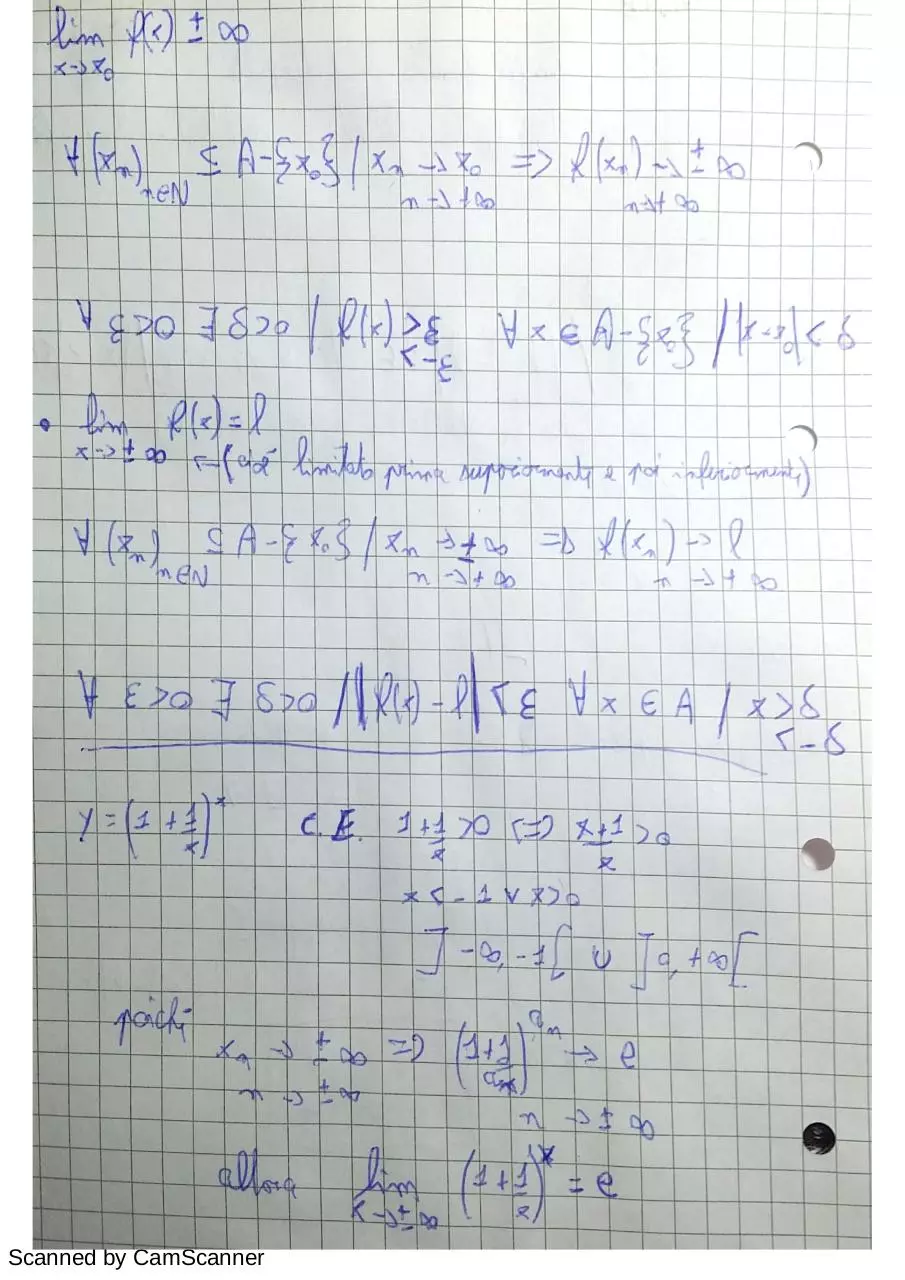 lim f(x) ± ∞
x→x₀
∀(xₙ)ₙ∈ℕ ⊆ A-{x₀} / xₙ → x₀ => f(xₙ) → ±∞
n→+∞ n→+∞
∀ε>0 ∃δ>0 / f(x)>ε ∀x∈A-{x₀} / |x-x₀|<δ
<-ε
• lim f(x)=l
x→±∞ →(cioè limitato prima superiormente e poi inferiormente)
∀(xₙ)ₙ∈ℕ ⊆ A-{x₀} / xₙ → ±∞ => f(xₙ) → l
n→+∞ n→+∞
∀ε>0 ∃δ>0 / |f(x)-l|<ε ∀x∈A / x>δ
<-δ
y=(1+1/x)ˣ C.E. 1+1/x>0 <=> x+1/x>0
x<-1 ∨ x>0
]-∞,-1[ ∪ ]0,+∞[
poiché
xₙ → ±∞ => (1+1/aₙ)^aₙ → e
n→±∞
n→±∞
allora lim (1+1/x)ˣ = e
x→±∞
Scanned by CamScanner